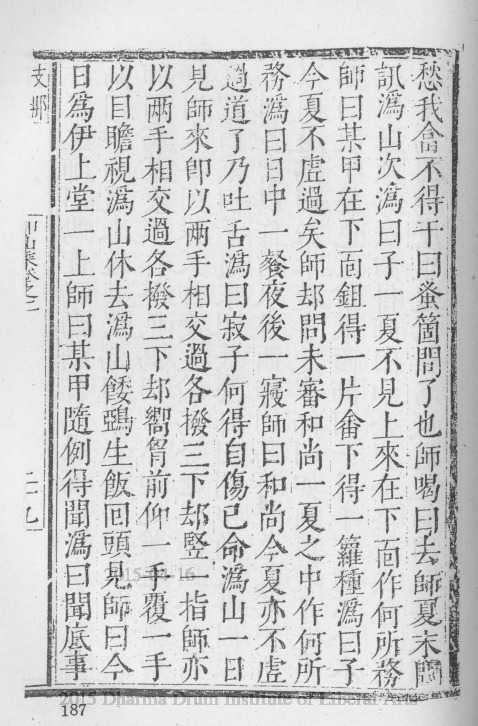 愁我會不得干曰蚤箇問了也師喝曰去師夏末問
訊溈山次溈曰子一夏不見上來在下面作何所務
師曰某甲在下面鉏得一片畬下得一籮種溈曰子
今夏不虛過矣師却問未審和尚一夏之中作何所
務溈曰日中一餐夜後一寢師曰和尚今夏亦不虛
過道了乃吐舌溈曰寂子何得自傷己命溈山一日
見師來卽以兩手相交過各撥三下却竪一指師亦
以兩手相交過各撥三下却嚮胷前仰一手覆一手
以目瞻視溈山休去溈山餧鵶生飯囘頭見師曰今
日爲伊上堂一上師曰某甲隨例得聞溈曰聞底事
支那
二十九
2015-04-16
2015 Dharma Drum Institute of Liberal Arts
187